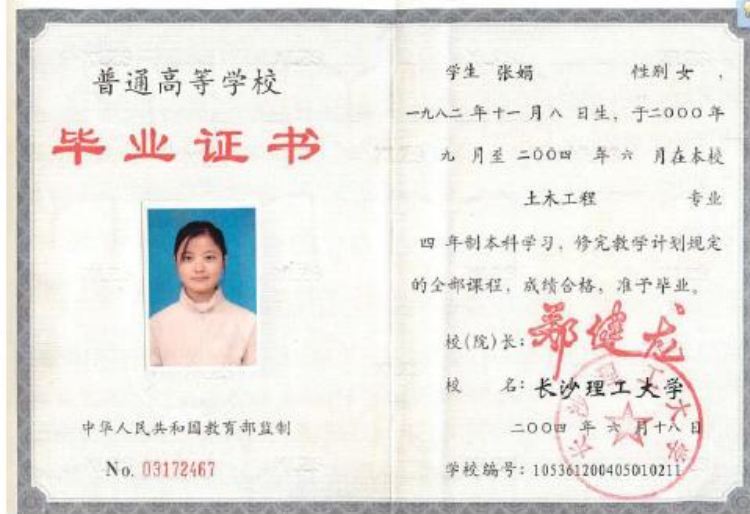 普通高等学校
毕业证书
中华人民共和国教育部监制
No. 03172467
学生 张娟 性别 女 ,
一九八二 年十一 月八 日生, 于二000年
九 月至 二00四 年 六 月在本校
土木工程 专业
四 年制本科学习, 修完教学计划规定
的全部课程, 成绩合格, 准予毕业。
校(院)长: 郑健龙
校 名: 长沙理工大学
二00四 年 六 月十八 日
学校编号: 105361200405010211
长沙理工大学